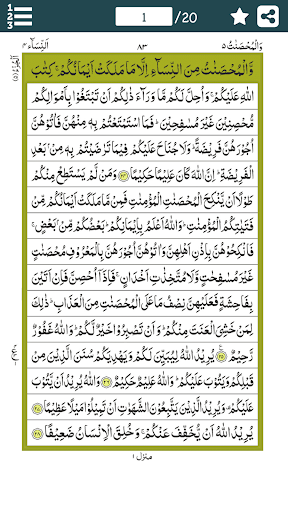 1 2 3
1 /20
وَالْمُحْصَنٰتُ ٥
٨٣
النِّسَآء ٤
وَّالْمُحْصَنٰتُ مِنَ النِّسَآءِ اِلَّا مَا مَلَكَتْ اَيْمَانُكُمْ ۚ كِتٰبَ
اللّٰهِ عَلَيْكُمْ ۚ وَاُحِلَّ لَكُمْ مَّا وَرَآءَ ذٰلِكُمْ اَنْ تَبْتَغُوْا بِاَمْوَالِكُمْ
مُّحْصِنِيْنَ غَيْرَ مُسٰفِحِيْنَ ؕ فَمَا اسْتَمْتَعْتُمْ بِهٖ مِنْهُنَّ فَاٰتُوْهُنَّ
اُجُوْرَهُنَّ فَرِيْضَةً ؕ وَلَا جُنَاحَ عَلَيْكُمْ فِيْمَا تَرٰضَيْتُمْ بِهٖ مِنْۢ بَعْدِ
الْفَرِيْضَةِ ؕ اِنَّ اللّٰهَ كَانَ عَلِيْمًا حَكِيْمًا ﴿۲۴﴾ وَمَنْ لَّمْ يَسْتَطِعْ مِنْكُمْ
طَوْلًا اَنْ يَّنْكِحَ الْمُحْصَنٰتِ الْمُؤْمِنٰتِ فَمِنْ مَّا مَلَكَتْ اَيْمَانُكُمْ مِّنْ
فَتَيٰتِكُمُ الْمُؤْمِنٰتِ ؕ وَاللّٰهُ اَعْلَمُ بِاِيْمَانِكُمْ ؕ بَعْضُكُمْ مِّنْۢ بَعْضٍ ۚ
فَانْكِحُوْهُنَّ بِاِذْنِ اَهْلِهِنَّ وَاٰتُوْهُنَّ اُجُوْرَهُنَّ بِالْمَعْرُوْفِ مُحْصَنٰتٍ
غَيْرَ مُسٰفِحٰتٍ وَّلَا مُتَّخِذٰتِ اَخْدَانٍ ۚ فَاِذَآ اُحْصِنَّ فَاِنْ اَتَيْنَ
بِفَاحِشَةٍ فَعَلَيْهِنَّ نِصْفُ مَا عَلَى الْمُحْصَنٰتِ مِنَ الْعَذَابِ ؕ ذٰلِكَ
لِمَنْ خَشِيَ الْعَنَتَ مِنْكُمْ ؕ وَاَنْ تَصْبِرُوْا خَيْرٌ لَّكُمْ ؕ وَاللّٰهُ غَفُوْرٌ
رَّحِيْمٌ ﴿۲۵﴾ يُرِيْدُ اللّٰهُ لِيُبَيِّنَ لَكُمْ وَيَهْدِيَكُمْ سُنَنَ الَّذِيْنَ مِنْ
قَبْلِكُمْ وَيَتُوْبَ عَلَيْكُمْ ؕ وَاللّٰهُ عَلِيْمٌ حَكِيْمٌ ﴿۲۶﴾ وَاللّٰهُ يُرِيْدُ اَنْ يَّتُوْبَ
عَلَيْكُمْ ۟ وَيُرِيْدُ الَّذِيْنَ يَتَّبِعُوْنَ الشَّهَوٰتِ اَنْ تَمِيْلُوْا مَيْلًا عَظِيْمًا ﴿۲۷﴾
يُرِيْدُ اللّٰهُ اَنْ يُّخَفِّفَ عَنْكُمْ ۚ وَخُلِقَ الْاِنْسَانُ ضَعِيْفًا ﴿۲۸﴾
منزل ١